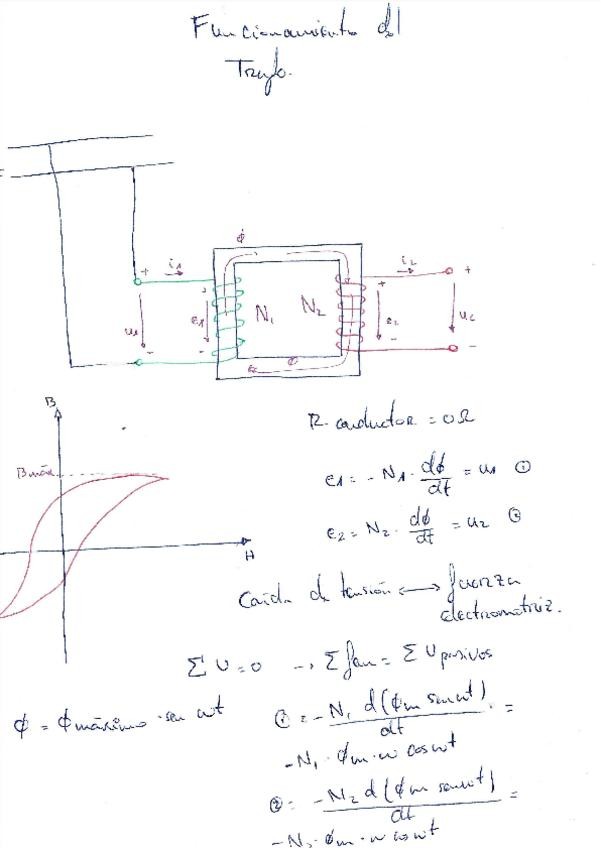 Funcionamiento del
Trafo.
ϕ
+ i1
i2 +
u1 e1 N1 N2 e2 u2
+ -
- -
ϕ
B
Bmáx
H
R conductor = 0Ω
e1 = - N1 · dϕ/dt = u1 ①
e2 = N2 · dϕ/dt = u2 ②
Caída de tensión ↔ fuerza
electromotriz.
Σ U = 0 → Σ fem = Σ U pasivos
ϕ = ϕ máximo · sen wt
① = - N1 d(ϕm sen wt)/dt =
- N1 · ϕm · w cos wt
② = - N2 d(ϕm sen wt)/dt =
- N2 · ϕm · w cos wt